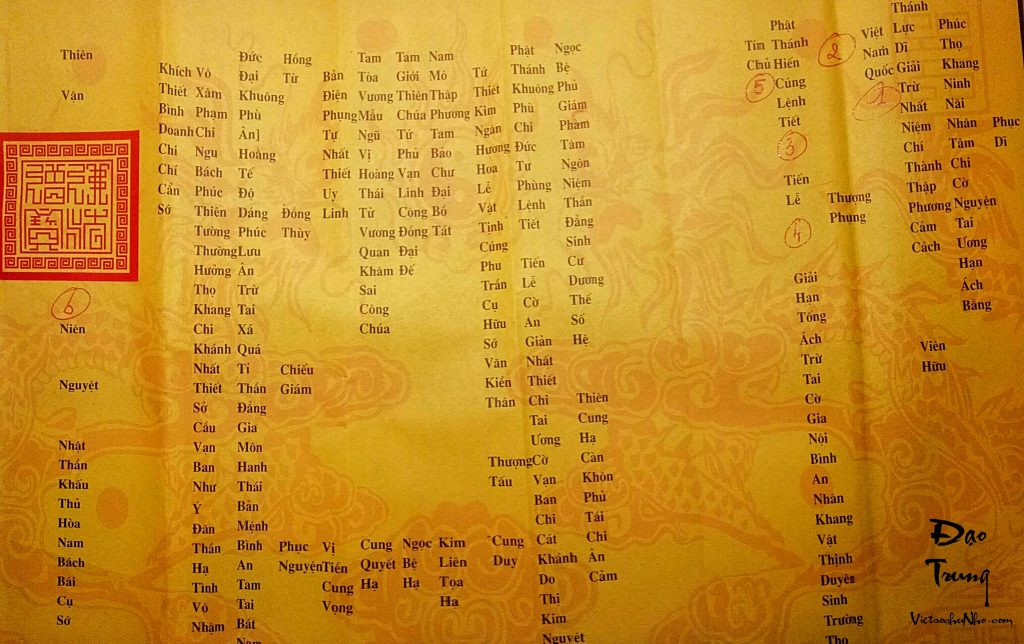 Phục Dĩ
Phúc Thọ Khang Ninh Nãi Nhân Tâm Chi Cờ Nguyện Tai Ương Hạn Ách Bằng
Thánh Lực Dĩ Giải Trừ Nhất Niệm Chí Thành Thập Phương Cảm Cách Viên Hữu
1
Việt Nam Quốc
2
Thượng Phụng
Phật Thánh Hiến Cúng Lệnh Tiết
3
Tiến Lễ
4
Giải Hạn Tống Ách Trừ Tai Cờ Gia Nội Bình An Nhân Khang Vật Thịnh Duyên Sinh Trường Thọ
Tín Chủ
5
Ngọc Bệ Phủ Giám Phẩm Tâm Ngôn Niệm Thần Đẳng Sinh Cư Dương Thế Số Hệ Thiên Cung Hạ Càn Khôn Phủ Tái Chi Ân Cảm
Phật Thánh Khuông Phù Chi Đức Tư Phùng Lệnh Tiết Tiến Lễ Cờ An Giản Nhất Thiết Chi Tai Ương Cờ Vạn Ban Chi Cát Khánh Do Thị Kim Nguyệt
Tứ Thiết Kim Ngân Hương Hoa Lễ Vật Tịnh Cúng Phu Trần Cụ Hữu Sớ Văn Kiền Thân Thượng Tấu Cung Duy
Nam Mô Thập Phương Tam Bảo Chư Đại Bồ Tát Kim Liên Toạ Hạ
Tam Giới Thiên Chúa Tứ Phủ Vạn Linh Công Đồng Đại Đế Ngọc Bệ Hạ
Tam Tòa Vương Mẫu Ngũ Vị Hoàng Thái Tử Vương Quan Khâm Sai Công Chúa Cung Quyết Hạ
Bản Điện Phụng Tự Nhất Thiết Uy Linh Vị Tiền Cung Vọng
Hồng Từ Đồng Thùy Chiếu Giám Phục Nguyện
Đức Đại Khuông Phù Ân] Hoằng Tế Độ Dáng Phúc Lưu Ân Trừ Tai Xá Quá Tỉ Thần Đẳng Gia Môn Hanh Thái Bản Mệnh Bình An Tam Tai Bát
Vô Xâm Phạm Chi Ngu Bách Phúc Thiên Tường Thường Hưởng Thọ Khang Chi Khánh Nhất Thiết Sở Cầu Vạn Ban Như Ý Đàn Thần Hạ Tình Vô Nhậm
Khích Thiết Bình Doanh Chi Chí Cẩn Sớ
Thiên Vận
6
Niên Nguyệt Nhật Thần Khấu Thủ Hòa Nam Bách Bái Cụ Sớ
Đạo
Trung
VietsochuNho.com